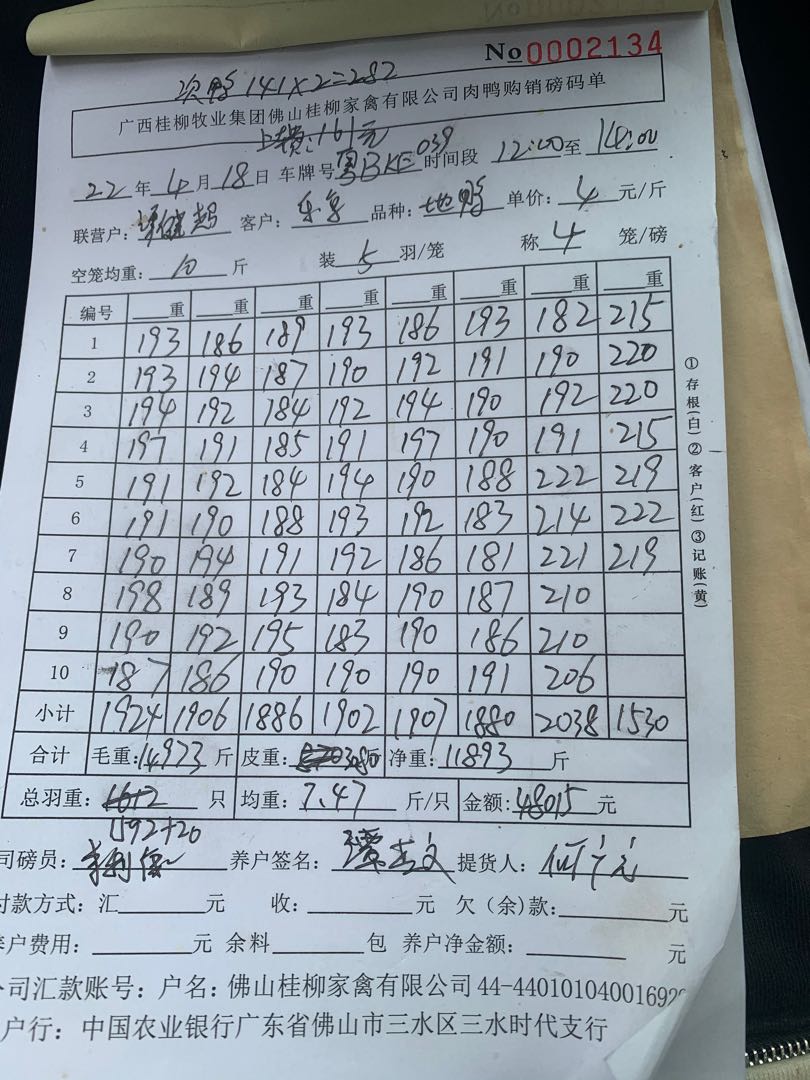 No 0002134
次鸭 141×2=282
广西桂柳牧业集团佛山桂柳家禽有限公司肉鸭购销磅码单
161元
22年4月18日 车牌号粤BKE039 时间段 12:00至14:00
联营户： 客户： 品种：地鸭 单价：4元/斤
空笼均重：10斤 装5羽/笼 称4笼/磅
编号 重 重 重 重 重 重 重 重
1 193 186 189 193 186 193 182 215
2 193 194 187 190 192 191 190 220
3 194 192 184 192 194 190 192 220
4 197 191 185 191 197 190 191 215
5 191 192 184 194 190 188 222 219
6 191 190 188 193 192 183 214 222
7 190 194 191 192 186 181 221 219
8 198 189 193 184 190 187 210
9 190 192 195 183 190 186 210
10 187 186 190 190 190 191 206
小计 1924 1906 1886 1902 1907 1880 2038 1530
合计 毛重：14973斤 皮重：3080斤 净重：11893斤
总羽重：1612只 均重：7.47斤/只 金额：48015元
1592+20
司磅员： 养户签名： 提货人：
付款方式：汇 元 收： 元 欠（余）款： 元
养户费用： 元 余料 包 养户净金额： 元
公司汇款账号：户名：佛山桂柳家禽有限公司 44-44010104001692
户行：中国农业银行广东省佛山市三水区三水时代支行
①存根(白)②客户(红)③记账(黄)